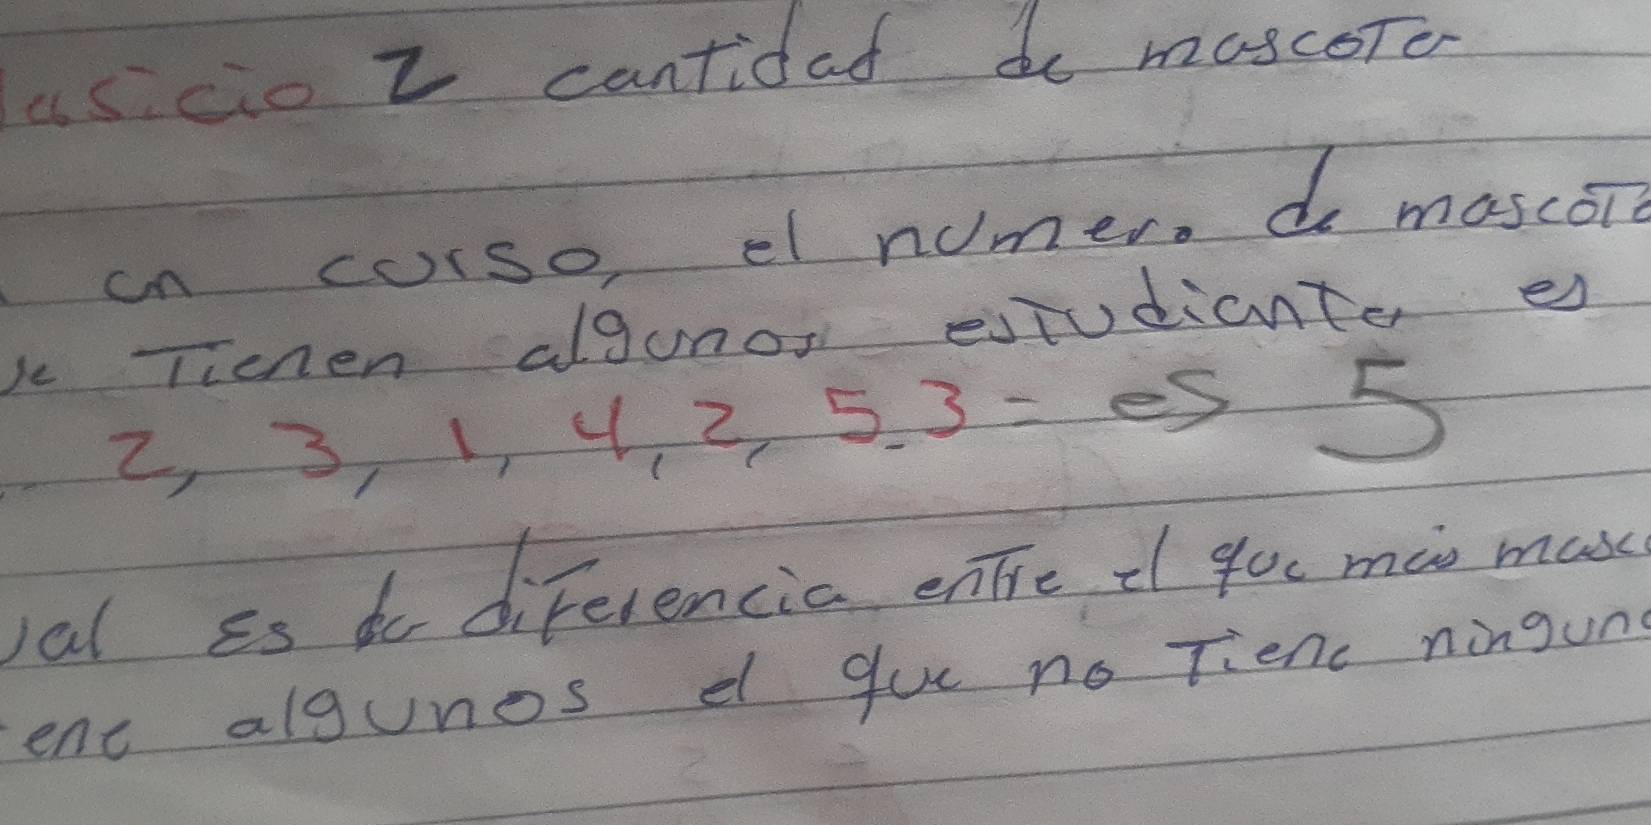 asicio 2 cantidad de mascota
en curso, el numero de mascota
Tienen algunos estudiante es
2, 3, 1, 4, 2, 5. 3 = es 5
ual Es la diferencia entre el que más masco
ene algunos el que no Tiene ninguno